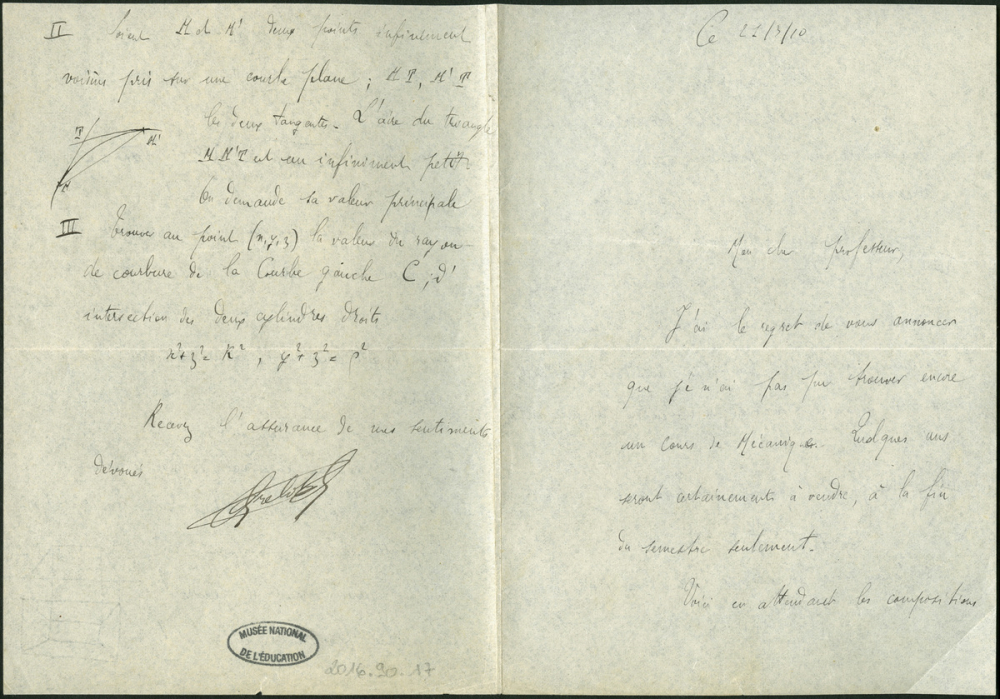 Ce 22/3/10
Mon cher professeur,
J'ai le regret de vous annoncer
que je n'ai pas pu trouver encore
un cours de Mécanique. Quelques uns
seront certainements à vendre, à la fin
du semestre seulement.
Voici en attendant les compositions
II Soient M et M' deux points infiniment
voisins pris sur une courbe plane ; M T, M' T
les deux tangentes. L'aire du triangle
M M' T est un infiniment petit.
On demande sa valeur principale
T
M'
M
III Trouver au point (x, y, z) la valeur du rayon
de courbure de la Courbe gauche C ; d'
intersection des deux cylindres droits
x² + z² = R² , y² + z² = ρ²
Recevez l'assurance de mes sentiments
dévoués
MUSÉE NATIONAL
DE L'ÉDUCATION
2016.90.17